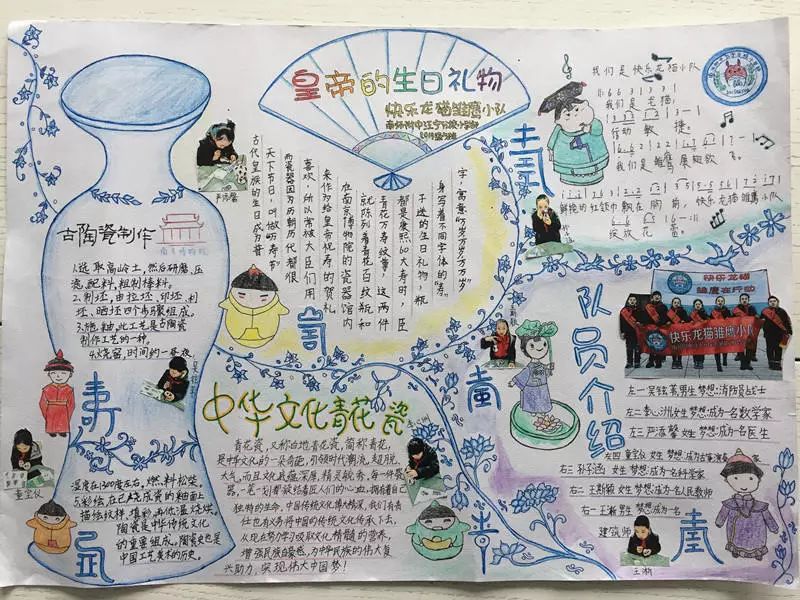 皇帝的生日礼物
快乐龙猫雏鹰小队
古陶瓷制作
1.选取高岭土,然后研磨、压
洗,配料,粗制棒料。
2.制坯,由拉坯、印坯、利
坯、晒坯四个步骤组成。
3.施釉,此工艺是古陶瓷
制作工艺的一种。
4.烧窑,时间约一昼夜,
温度在1300度左右,燃料松柴。
5.彩绘,在已烧成瓷的釉面上
描绘纹样、填彩,再低温烧。
陶瓷是中华传统文化
的重要组成。陶瓷史也是
中国工艺美术的历史。
古代皇族的生日成为普
天下节日,叫做"万寿节"
而瓷器因为历朝历代都很
喜欢,所以常被大臣们用
来作为给皇帝祝寿的贺礼
在南京博物院的瓷器馆内
就陈列着青花百纹瓶和
青花万寿纹尊,这两件
都是康熙60大寿时,臣
子送的生日礼物,瓶
身写着不同字体的"寿"
字,寓意的"万岁万万岁"。
中华文化青花瓷
青花瓷,又称白地青花瓷,简称青花,
是中华文化的一朵奇葩,引领时代潮流,超脱
大气,而且文化蕴深厚,精灵毓秀,每一件瓷
器,一笔一划都铭着匠人们的心血,拥有着自
独特的生命,中国传统文化博大精深,我们有责
任也有义务将中国的传统文化传承下去,
从现在努力学习汲取文化精髓的营养,
增强民族自豪色,为中华民族的伟大复
兴助力,实现伟大中国梦!
我们是快乐龙猫小队
我们是龙猫,
行动敏捷。
我们是雏鹰展翅欲飞。
鲜艳的红领巾飘在胸前,快乐龙猫雏鹰小队
绽放花蕾
快乐龙猫
雏鹰在行动
快乐龙猫雏鹰小队
队员介绍
左一 男生 梦想:消防员战士
左二 李心洲 女生 梦想:成为一名数学家
左三 严添馨 女生 梦想:成为一名医生
左四 童宝仪 女生 梦想:成为
右三 孙钰涵 女生 梦想:成为一名科学家
右二 王斯颖 女生 梦想:成为人民教师
右一 王瀚 男生 梦想:成为一名
建筑师
严添馨
童宝仪
王瀚